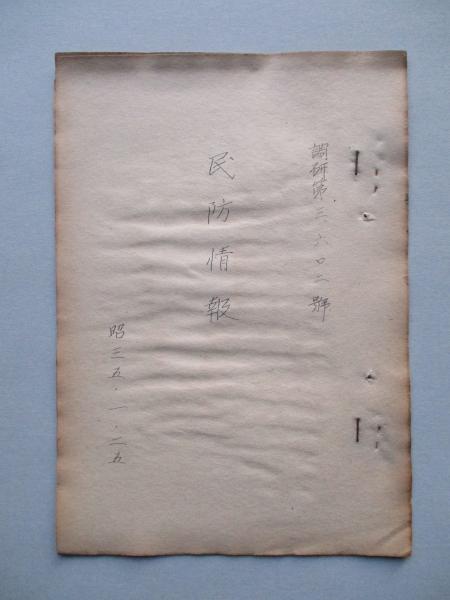 調研第三六〇二號
民防情報
昭三五・一・二五